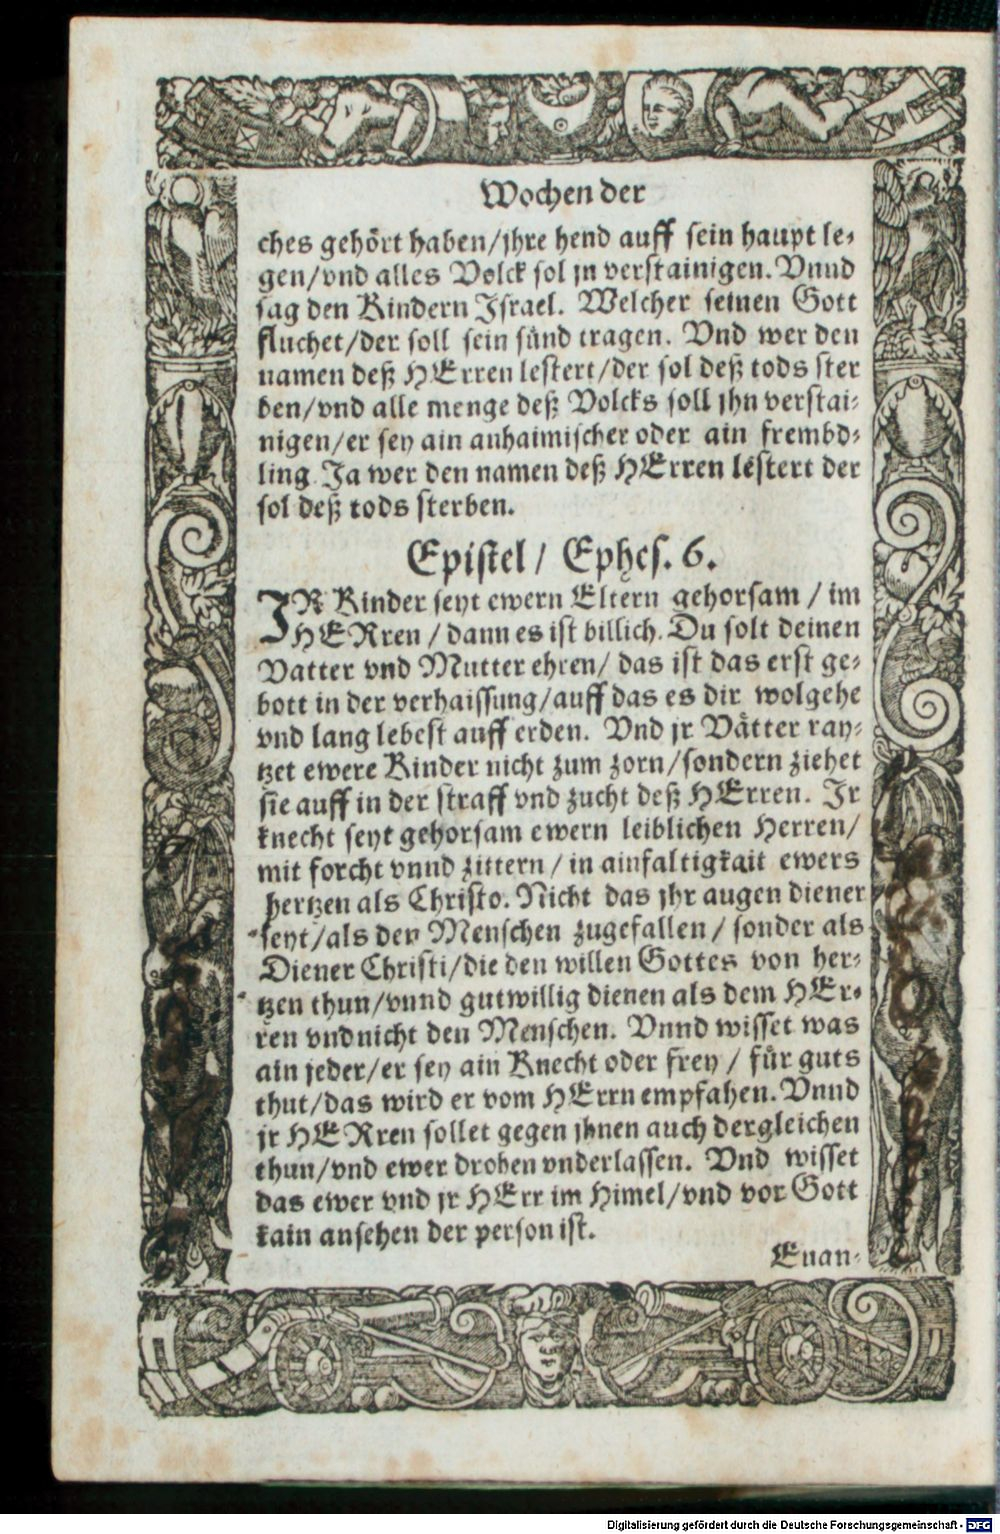 Wochen der
ches gehört haben/jhre hend auff sein haupt le-
gen/vnd alles Volck sol jn verstainigen. Vnnd
sag den Kindern Israel. Welcher seinen Gott
fluchet/der soll sein sünd tragen. Vnd wer den
namen deß HErren lestert/der sol deß tods ster
ben/vnd alle menge deß Volcks soll jhn verstai-
nigen/er sey ain anhaimischer oder ain frembd-
ling. Ja wer den namen deß HErren lestert der
sol deß tods sterben.
Epistel / Ephes. 6.
IR Kinder seyt ewern Eltern gehorsam / im
HERren / dann es ist billich. Du solt deinen
Vatter vnd Mutter ehren/ das ist das erst ge-
bott in der verhaissung/auff das es dir wolgehe
vnd lang lebest auff erden. Vnd jr Vätter ray-
tzet ewere Kinder nicht zum zorn/sondern ziehet
sie auff in der straff vnd zucht deß HErren. Ir
knecht seyt gehorsam ewern leiblichen Herren/
mit forcht vnnd zittern / in ainfaltigkait ewers
hertzen als Christo. Nicht das jhr augen diener
seyt/als den Menschen zugefallen / sonder als
Diener Christi/die den willen Gottes von her-
tzen thun/vnnd gutwillig dienen als dem HEr-
ren vnd nicht den Menschen. Vnnd wisset was
ain jeder/er sey ain Knecht oder frey / für guts
thut/das wird er vom HErrn empfahen. Vnnd
jr HERren sollet gegen jhnen auch dergleichen
thun/vnd ewer drohen vnderlassen. Vnd wisset
das ewer vnd jr HErr im Himel/vnd vor Gott
kain ansehen der person ist.
Euan-
Digitalisierung gefördert durch die Deutsche Forschungsgemeinschaft - DFG